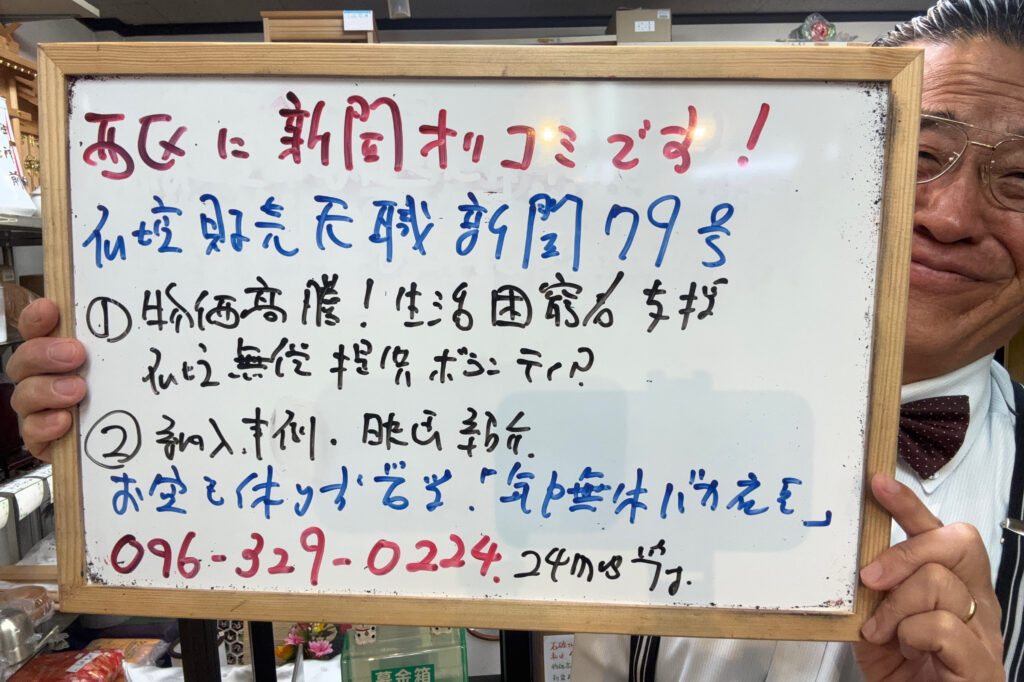 西区に新聞オリコミです!
仏壇販売天職新聞79号
①物価高騰!生活困窮者支援
仏壇無償提供ボランティア
②納入事例、映画紹介
お盆も休まず営業「年中無休バカ店主」
096-329-0224.
募金箱